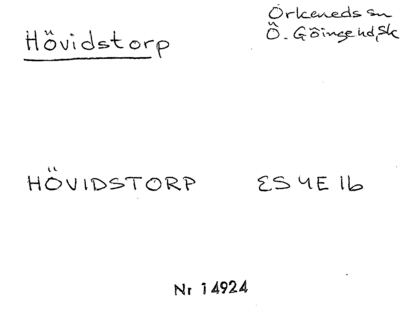 Hövidstorp
Örkeneds sn
Ö. Göinge hd, Sk
HÖVIDSTORP ES 4E 1b
Nr 14924